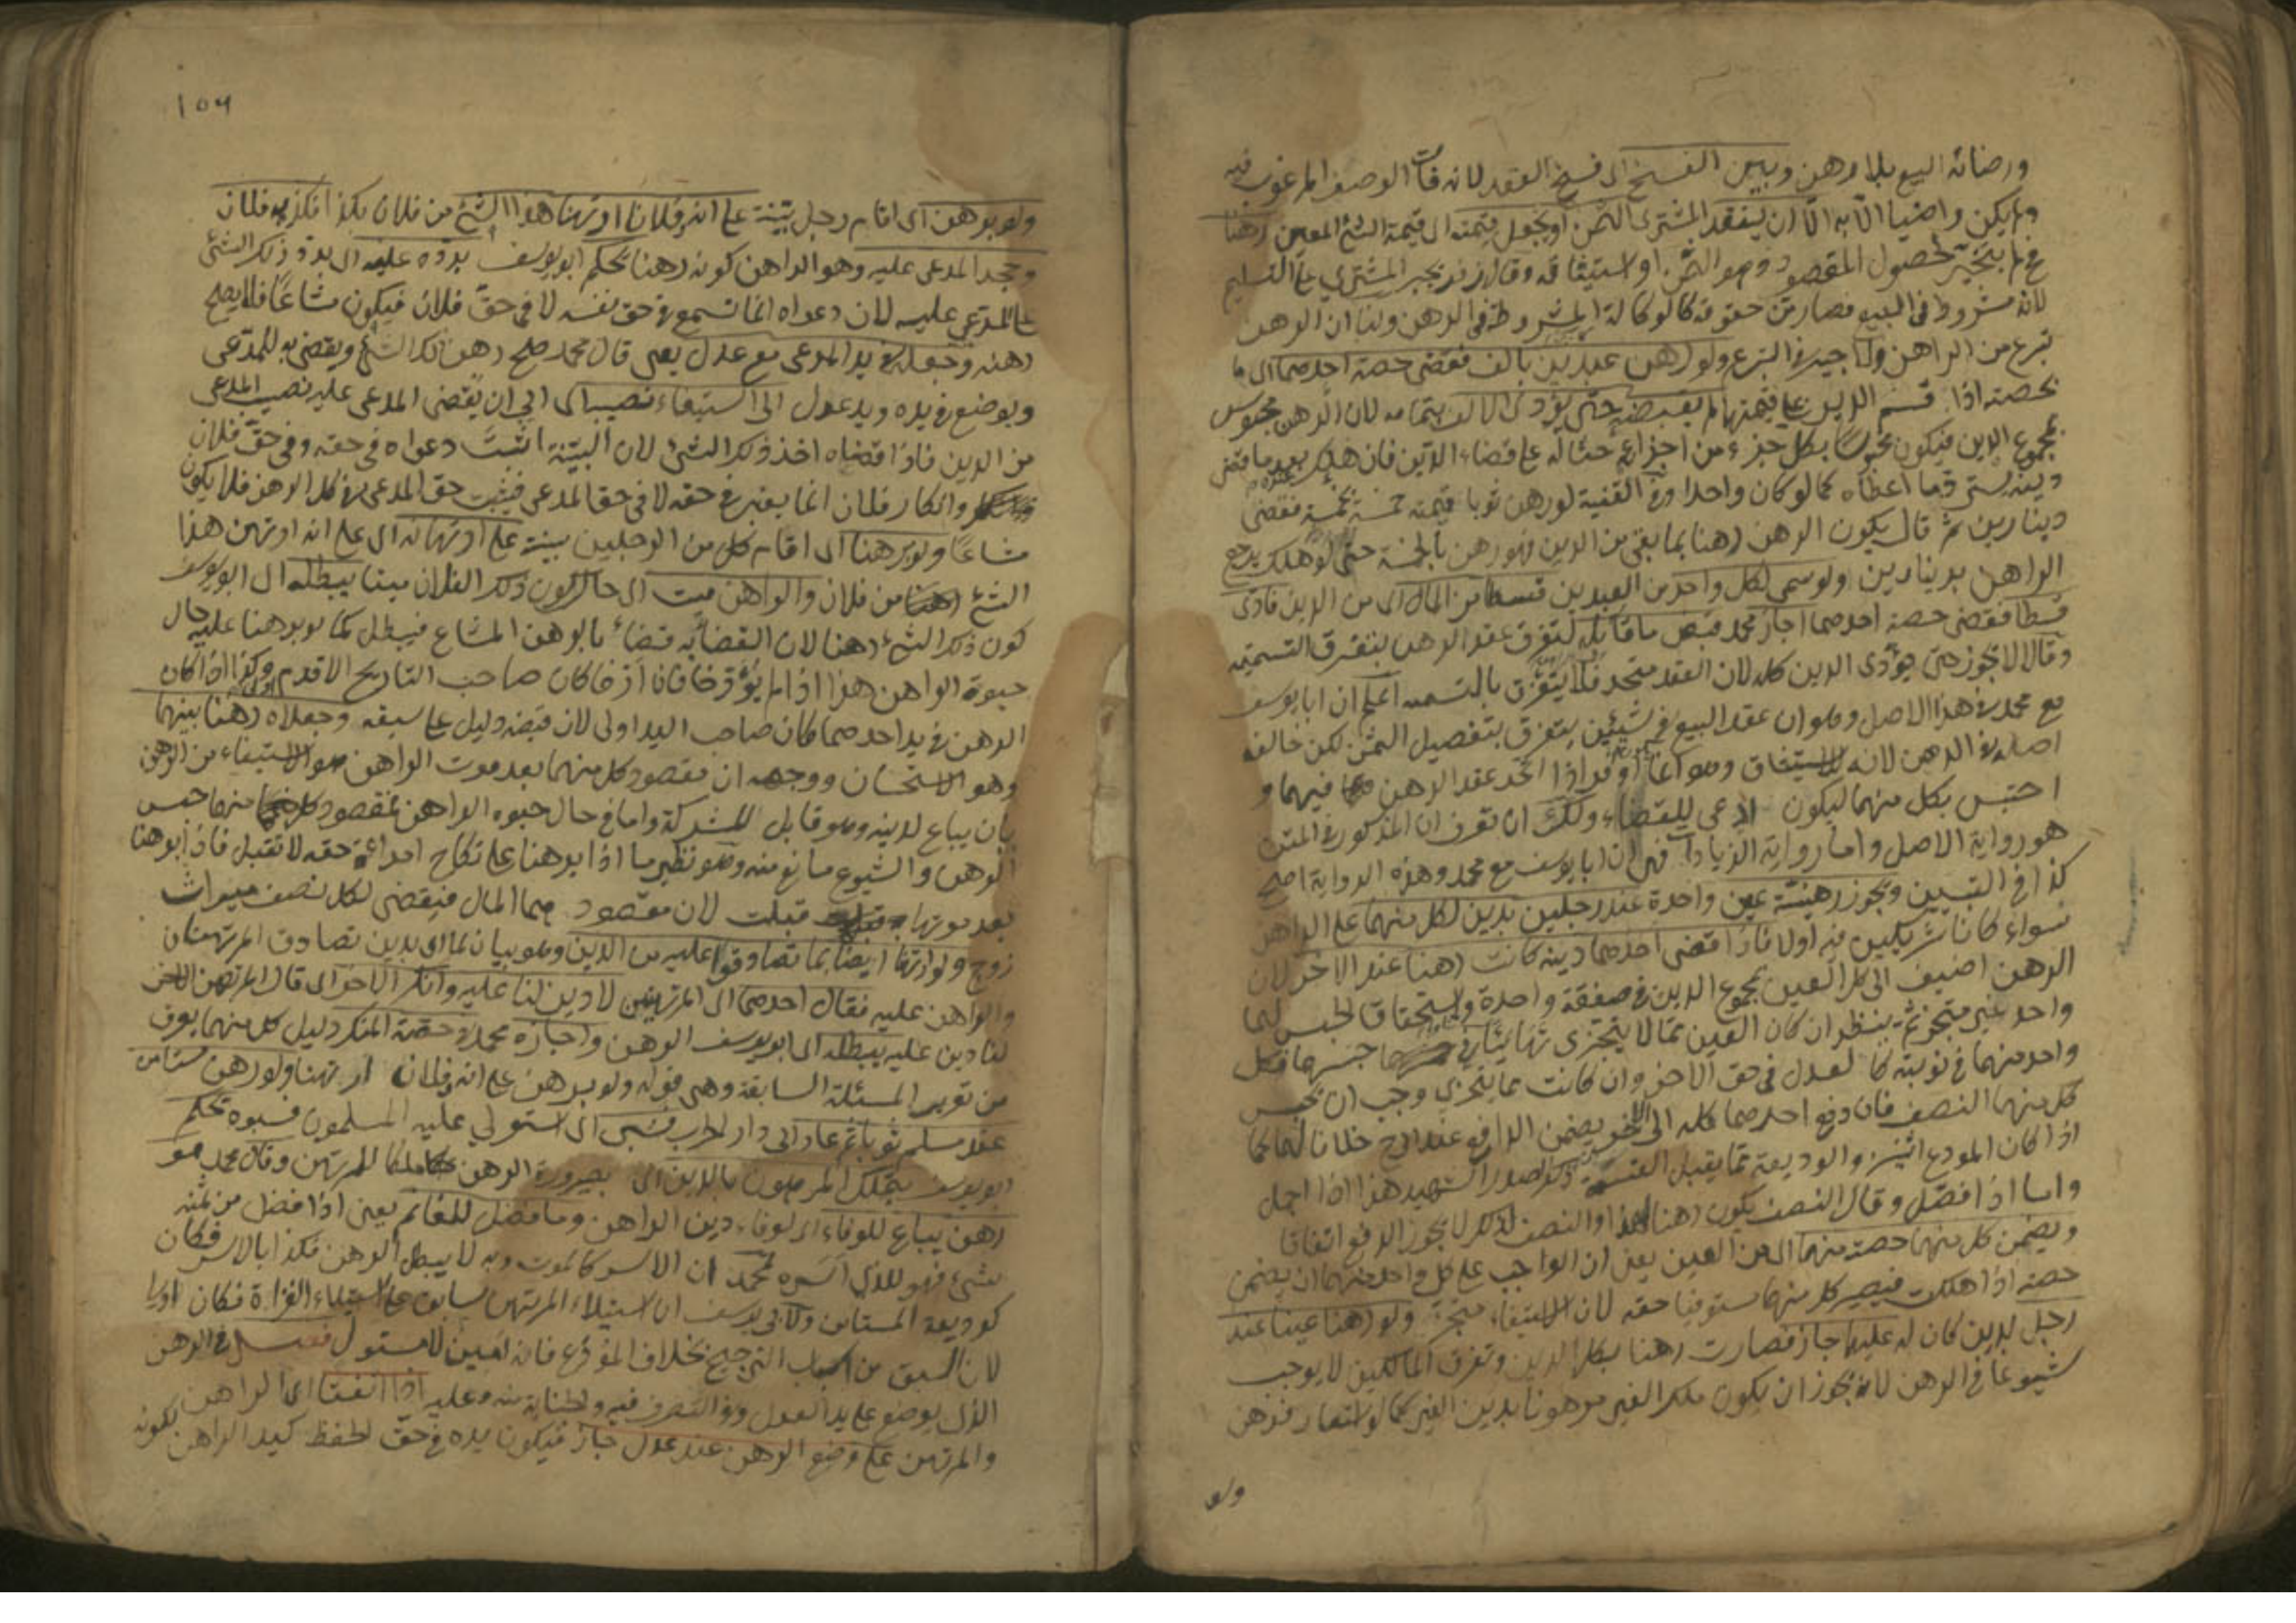 ورضائه البيع بلا رهن وبين الفسخ اى فسخ العقد لانه فات الوصف المرغوب فيه
ولم يكن راضيا الا به الا ان ينقد المشترى الثمن او يجعل قيمته اى قيمة الشئ المعين رهنا
فح لم يتخير لحصول المقصود وهو الثمن او استيثاقه وقال زفر يجبر المشترى على التسليم
لانه مشروط فى البيع فصار من حقوقه كالوكالة المشروطة فى الرهن ولنا ان الرهن
تبرع من الراهن ولا جبر فى التبرع ولو رهن عبدين بالف فقضى حصة احدهما اى ما
يخصه اذا قسم الدين على قيمتها لم يقبضه حتى يؤدى الالف بتمامه لان الرهن محبوس
بمجموع الدين فيكون محبوسا بكل جزء من اجزائه حثا له على قضاء الدين فان هلك بعد ما قضى
دينه يسترد ما اعطاه كما لو كان واحدا وفى القنية لو رهن ثوبا قيمته خمسة بخمسة فقضى
دينارين ثم قال يكون الرهن رهنا بما بقى من الدين فهو رهن بالخمسة حتى لو هلك يرجع
الراهن بدينارين ولو سمى لكل واحد من العبدين قسطا من المال اى من الدين فادى
قسطا فقضى حصة احدهما اجاز محمد قبض ما قابله لتفرق عقد الرهن بتفرق التسمية
وقالا لا تجوز حتى يؤدى الدين كله لان العقد متحد فلا يتفرق بالتسمية اعلم ان ابا يوسف
مع محمد فى هذا الاصل وهو ان عقد البيع فى شيئين يتفرق بتفصيل الثمن لكن خالف
اصله فى الرهن لانه للاستيثاق وهو اذا اتحد عقد الرهن فيهما و
احتبس بكل منهما ليكون ادعى للقضاء ولك ان تعرف ان المذكور فى المتن
هو رواية الاصل واما رواية الزيادات فهى ان ابا يوسف مع محمد وهذه الرواية اصح
كذا فى التبيين ويجوز رهنية عين واحدة عند رجلين بدين لكل منهما على الراهن
سواء كانا شريكين فيه او لا فاذا قضى احدهما دينه كانت رهنا عند الاخر لان
الرهن اضيف الى كل العين بمجموع الدين فى صفقة واحدة واستحقاق الحبس لهما
واحد غير متجز ثم ينظر ان كان العين مما لا يتجزى تهايئا فى حبسها فكل
واحد منهما فى نوبته كالعدل فى حق الاخر وان كانت مما يتجزى وجب ان يحبس
كل منهما النصف فان دفع احدهما كله الى الاخر يضمن الدافع عند ابى ح خلافا لهما كما
اذا كان المودع اثنين والوديعة مما يقبل القسمة ذكر الصدر الشهيد هذا اذا اجمل
واما اذا فصل وقال النصف يكون رهنا لهذا والنصف لذلك لا يجوز الدفع اتفاقا
ويضمن كل منهما حصته منها اى من العين يعنى ان الواجب على كل واحد منهما ان يضمن
حصته اذا هلكت فيصير كل منهما مستوفيا حقه لان الاستيفاء متجز ولو رهنا عينا عند
رجل بدين كان له عليهما جاز فصارت رهنا بكل الدين وتفرق المالكين لا يوجب
شيوعا فى الرهن لانه يجوز ان يكون ملك الغير مرهونا بدين الغير كما لو استعار فرهن
ولو
١٥٦
ولو برهن اى اقام رجل بينة على انه وفلانا ارتهنا هذا الشئ من فلان بكذا فكذبه فلان
وجحد المدعى عليه وهو الراهن كونه رهنا يحكم ابو يوسف برده عليه اى برد ذلك الشئ
على المدعى عليه لان دعواه انما تسمع فى حق نفسه لا فى حق فلان فيكون مشاعا فلا يصح
رهنه وجعله فى يد المدعى مع عدل يعنى قال محمد صح رهن ذلك الشئ ويقضى به للمدعى
ويوضع فى يده ويد عدل الى استيفاء نصيبه اى الى ان يقضى المدعى عليه نصيب المدعى
من الدين فاذا قضاه اخذ ذلك الشئ لان البينة اثبتت دعواه فى حقه وفى حق فلان
وانكار فلان انما يعتبر فى حقه لا فى حق المدعى فيثبت حق المدعى فى كل الرهن فلا يكون
مشاعا ولو برهنا اى اقام كل من الرجلين بينة على ارتهانه اى على انه ارتهن هذا
الشئ من فلان والراهن ميت اى حال كون ذلك الفلان ميتا يبطله اى ابو يوسف
كون ذلك الشئ رهنا لان القضاء به قضاء بالرهن المشاع فيبطل كما لو برهنا عليه حال
حيوة الراهن هذا اذا لم يؤرخا فان ارخا كان صاحب التاريخ الاقدم اولى وكذا اذا كان
الرهن فى يد احدهما كان صاحب اليد اولى لان قبضه دليل على سبقه وجعلاه رهنا بينهما
وهو الاستحسان ووجهه ان مقصود كل منهما بعد موت الراهن هو الاستيفاء من الرهن
بان يباع لدينه وهو قابل للشركة واما فى حال حيوة الراهن فمقصود كل منهما حبس
الرهن والشيوع مانع منه وهو نظير ما اذا برهنا على نكاح امراءة حقه لا تقبل فاذا برهنا
بعد موتها قبلت لان مقصودهما المال فيقضى لكل نصف ميراث
زوج ولو ارتهنا ايضا بما تصادقوا عليه من الدين وهو بيان لما اى بدين تصادق المرتهنان
والراهن عليه فقال احدهما اى المرتهنين لا دين لنا عليه وانكر الاخر اى قال المرتهن الاخر
لنا دين عليه يبطله اى ابو يوسف الرهن واجازه محمد فى حصة المنكر دليل كل منهما يعرف
من تقرير المسئلة السابقة وهى قوله ولو برهن على انه وفلان ارتهنا ولو رهن مستامن
عند مسلم ثوبا ثم عاد الى دار الحرب فسبى اى استولى عليه المسلمون فسبوه يحكم
ابو يوسف بتملك المرهون بالدين اى بصيرورة الرهن ملكا للمرتهن وقال محمد هو
رهن يباع للوفاء اى لوفاء دين الراهن وما فضل للغانم يعنى اذا فضل من ثمنه
شئ فهو للذى اسره لمحمد ان الاسر كالموت وبه لا يبطل الرهن فكذا بالاسر فكان
كوديعة المستامن ولابى يوسف ان استيلاء المرتهن سابق على استيلاء الغزاة فكان اولى
لان السبق من اسباب الترجيح بخلاف المودع فانه امين لا مستول فصل فى الرهن
الذى يوضع على يد العدل وفى التصرف فيه والجناية منه وعليه اذا اتفقا اى الراهن
والمرتهن على وضع الرهن عند عدل جاز فيكون يده فى حق الحفظ كيد الراهن بكونه